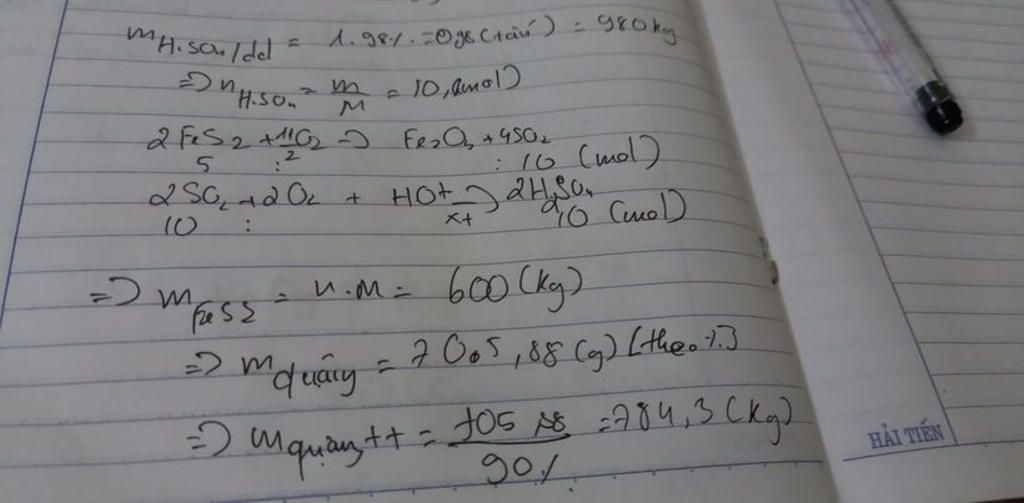 m H.SO4/dd = 1.98%.=0,98(tấn) = 980kg
=> n H.SO4 = m/M = 10,(mol)
2FeS2 + 11/2 O2 -> Fe2O3 + 4SO2
5 : : 10 (mol)
2SO2 + 2O2 + HO t xt -> 2H2SO4
10 : 10 (mol)
=> m FeS2 = n.M = 600 (kg)
=> m quặng = 705,88 (g) [theo %]
=> m quặng tt = 705,88/90% = 784,3 (kg)
HẢI TIẾN